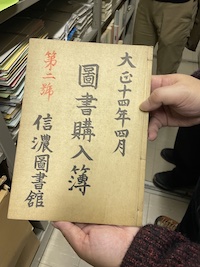 大正十四年四月
圖書購入簿
第二號
信濃圖書館